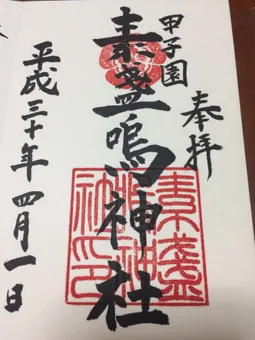 奉拝
甲子園
素盞嗚神社
平成三十年四月一日
素盞
嗚神
社印